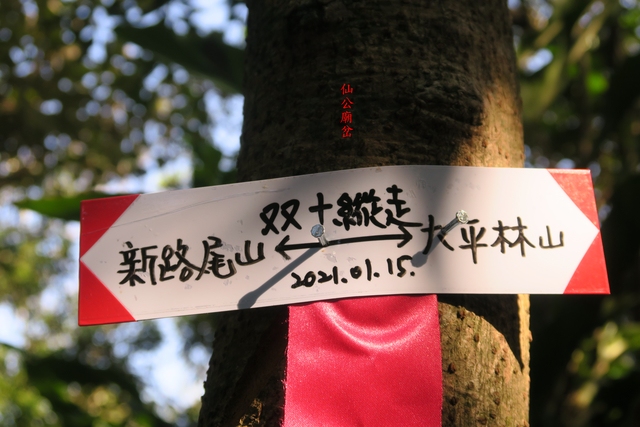 仙公廟岔
双十縱走
新路尾山 ↔ 大平林山
2021.01.15.